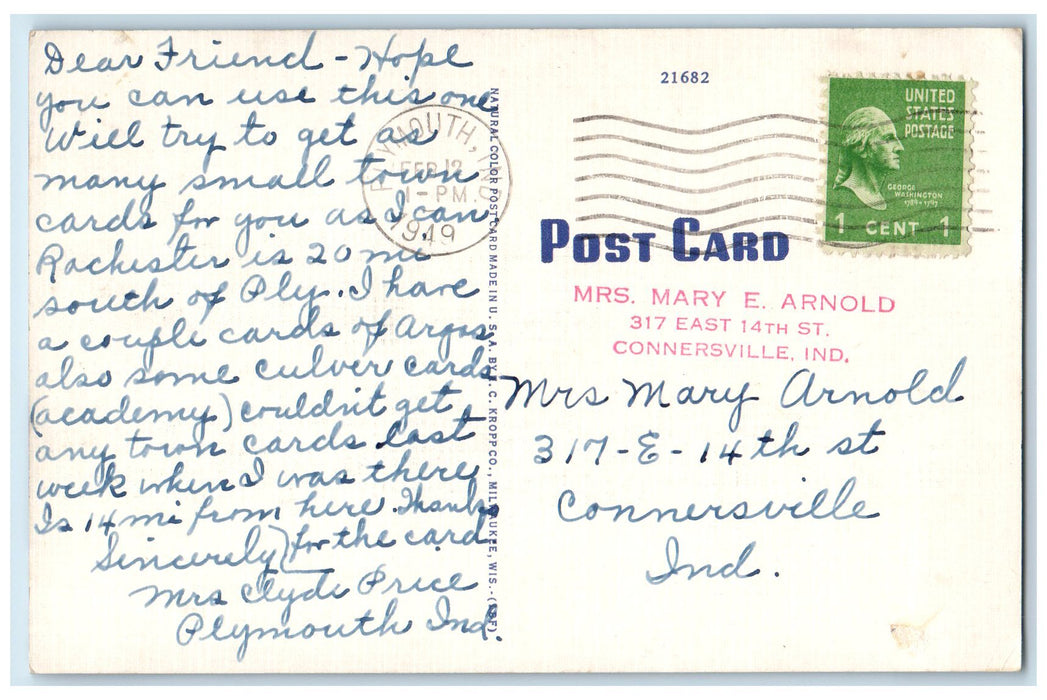 Dear Friend - Hope
you can use this one
Will try to get as
many small town
cards for you as I can.
Rochester is 20 mi
south of Ply. I have
a couple cards of Argos
also some culver cards
(academy) couldn't get
any town cards last
week when I was there
Is 14 mi from here. Thanks
Sincerely) for the card
Mrs Clyde Price
Plymouth Ind.
NATURAL COLOR POST CARD MADE IN U. S. A. BY E. C. KROPP CO., MILWAUKEE, WIS.-
PLYMOUTH, IND.
FEB 12
1 - PM
1949
21682
UNITED
STATES
POSTAGE
GEORGE
WASHINGTON
1789-1797
1 CENT 1
POST CARD
MRS. MARY E. ARNOLD
317 EAST 14TH ST.
CONNERSVILLE, IND.
Mrs Mary Arnold
317-E-14th st
Connersville
Ind.